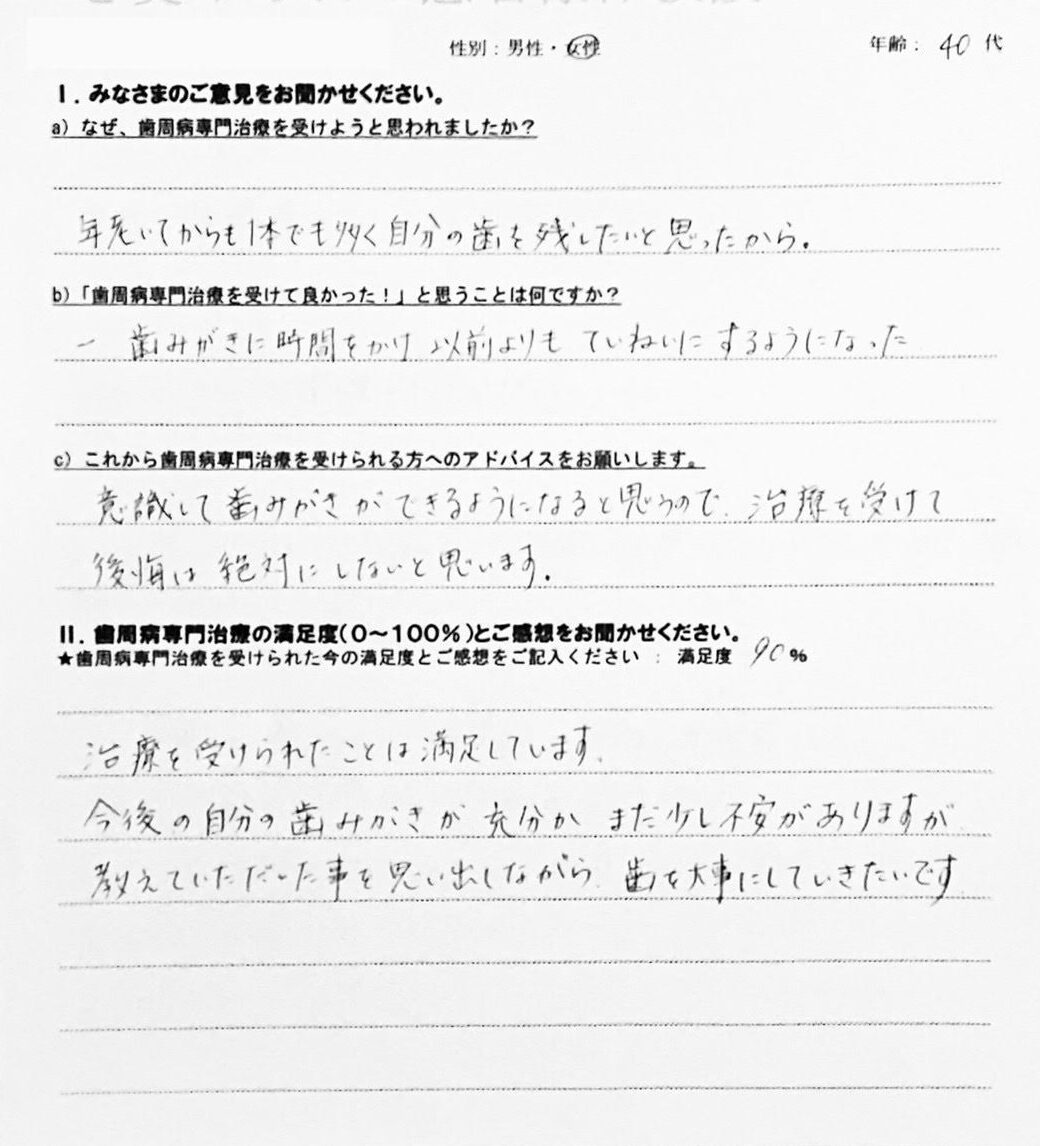 性別：男性・女性 年齢：40代
Ⅰ．みなさまのご意見をお聞かせください。
a）なぜ、歯周病専門治療を受けようと思われましたか？
年老いてからも1本でも多く自分の歯を残したいと思ったから。
b）「歯周病専門治療を受けて良かった！」と思うことは何ですか？
一 歯みがきに時間をかけ 以前よりも ていねいにするようになった
c）これから歯周病専門治療を受けられる方へのアドバイスをお願いします。
意識して歯みがきができるようになると思うので、治療を受けて
後悔は絶対にしないと思います。
Ⅱ．歯周病専門治療の満足度（0～100％）とご感想をお聞かせください。
★歯周病専門治療を受けられた今の満足度とご感想をご記入ください ： 満足度 90％
治療を受けられたことは満足しています。
今後の自分の歯みがきが 充分か まだ少し不安がありますが
教えていただいた事を思い出しながら、歯を大事にしていきたいです